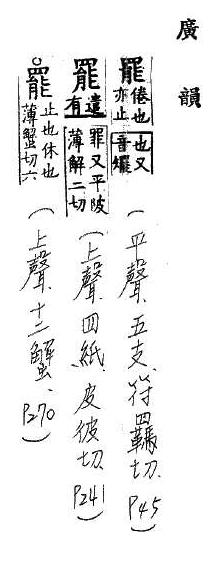 廣韻
罷倦也亦止也又音矲（平聲、五支、符羈切、P45）
罷遣有罪又平陂薄解二切（上聲、四紙、皮彼切、P241）
○罷止也休也薄蟹切六（上聲、十二蟹、P270）